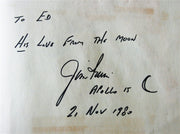 To Ed
His Love From The Moon
Jim Irwin
Apollo 15
21 Nov 1980